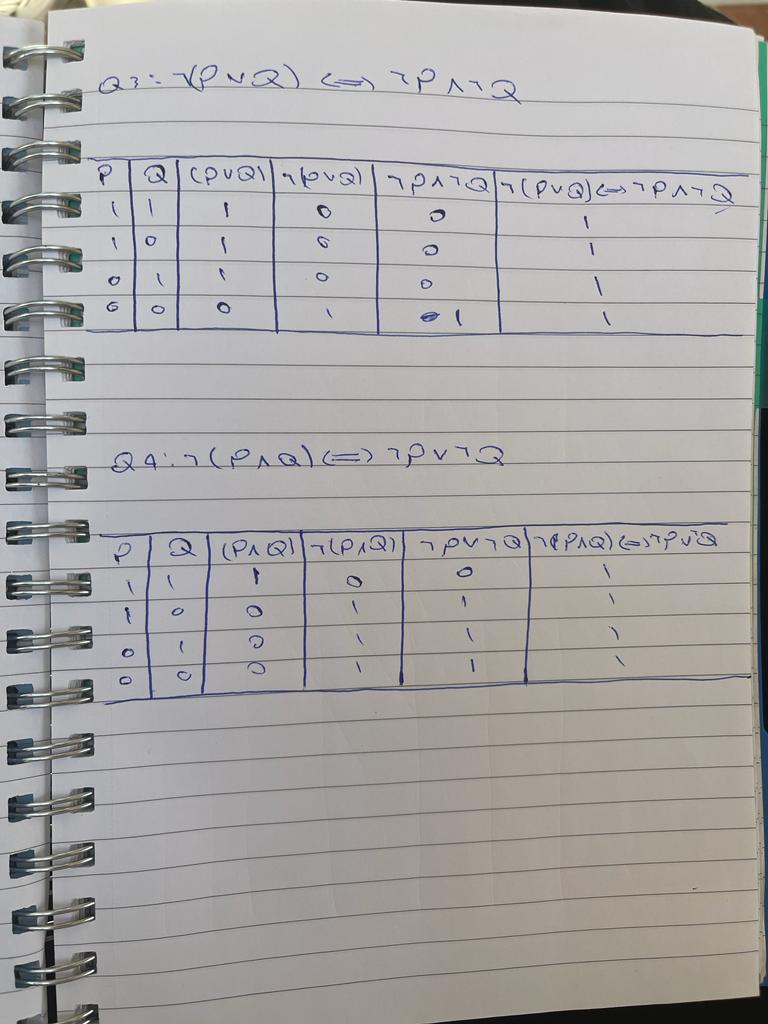 Q3:¬(P∨Q) ⟺ ¬P∧¬Q
P Q (P∨Q) ¬(P∨Q) ¬P∧¬Q ¬(P∨Q)⟺¬P∧¬Q
1 1 1 0 0 1
1 0 1 0 0 1
0 1 1 0 0 1
0 0 0 1 1 1
Q4:¬(P∧Q)⟺¬P∨¬Q
P Q (P∧Q) ¬(P∧Q) ¬P∨¬Q ¬(P∧Q)⟺¬P∨¬Q
1 1 1 0 0 1
1 0 0 1 1 1
0 1 0 1 1 1
0 0 0 1 1 1